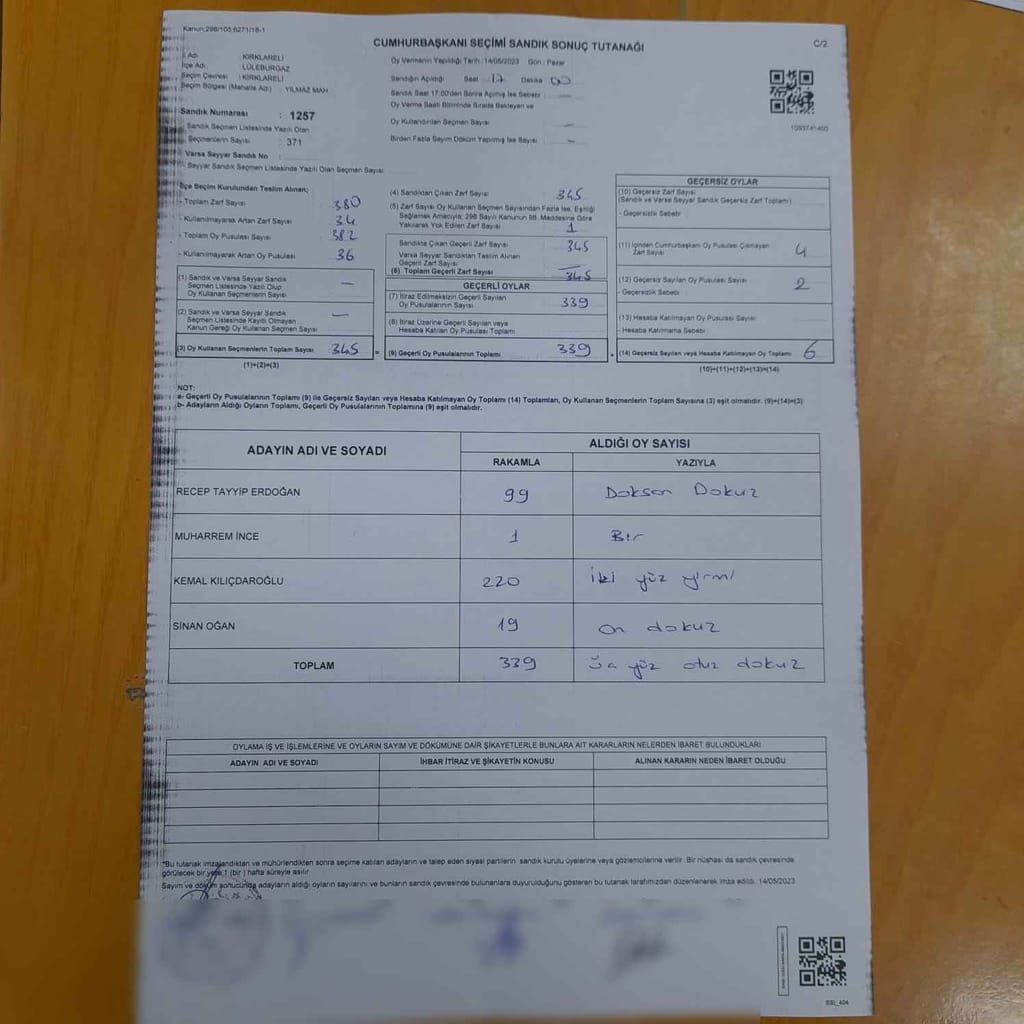 Kanun;298/105;6271/18-1
CUMHURBAŞKANI SEÇİMİ SANDIK SONUÇ TUTANAĞI
C/2
İli Adı : KIRKLARELİ
İlçe Adı : LÜLEBURGAZ
Seçim Çevresi : KIRKLARELİ
Seçim Bölgesi (Mahalle Adı) : YILMAZ MAH
Sandık Numarası : 1257
Sandık Seçmen Listesinde Yazılı Olan
Seçmenlerin Sayısı : 371
Varsa Seyyar Sandık No :
Seyyar Sandık Seçmen Listesinde Yazılı Olan Seçmen Sayısı
Oy Vermenin Yapıldığı Tarih : 14/05/2023 Gün : Pazar
Sandığın Açıldığı Saat 17 Dakika 00
Sandık Saat 17.00'den Sonra Açılmış İse Sebebi
Oy Verme Saati Bitiminde Sırada Bekleyen ve
Oy Kullandırılan Seçmen Sayısı —
Birden Fazla Sayım Döküm Yapılmış İse Sayısı —
1093741400
İlçe Seçim Kurulundan Teslim Alınan;
- Toplam Zarf Sayısı 380
- Kullanılmayarak Artan Zarf Sayısı 34
- Toplam Oy Pusulası Sayısı 382
- Kullanılmayarak Artan Oy Pusulası 36
(1) Sandık ve Varsa Seyyar Sandık
Seçmen Listesinde Yazılı Olup
Oy Kullanan Seçmenlerin Sayısı —
(2) Sandık ve Varsa Seyyar Sandık
Seçmen Listesinde Kayıtlı Olmayan
Kanun Gereği Oy Kullanan Seçmen Sayısı —
(3) Oy Kullanan Seçmenlerin Toplam Sayısı 345 =
(1)+(2)=(3)
(4) Sandıktan Çıkan Zarf Sayısı 345
(5) Zarf Sayısı Oy Kullanan Seçmen Sayısından Fazla İse, Eşitliği
Sağlamak Amacıyla; 298 Sayılı Kanunun 98. Maddesine Göre
Yakılarak Yok Edilen Zarf Sayısı 1
Sandıkta Çıkan Geçerli Zarf Sayısı 345
Varsa Seyyar Sandıktan Teslim Alınan
Geçerli Zarf Sayısı —
(6) Toplam Geçerli Zarf Sayısı 345
GEÇERLİ OYLAR
(7) İtiraz Edilmeksizin Geçerli Sayılan
Oy Pusulalarının Sayısı 339
(8) İtiraz Üzerine Geçerli Sayılan veya
Hesaba Katılan Oy Pusulası Toplamı
(9) Geçerli Oy Pusulalarının Toplamı 339 +
GEÇERSİZ OYLAR
(10) Geçersiz Zarf Sayısı
(Sandık ve Varsa Seyyar Sandık Geçersiz Zarf Toplamı)
- Geçersizlik Sebebi
(11) İçinden Cumhurbaşkanı Oy Pusulası Çıkmayan
Zarf Sayısı 4
(12) Geçersiz Sayılan Oy Pusulası Sayısı 2
- Geçersizlik Sebebi
(13) Hesaba Katılmayan Oy Pusulası Sayısı
- Hesaba Katılmama Sebebi
(14) Geçersiz Sayılan veya Hesaba Katılmayan Oy Toplamı 6
(10)+(11)+(12)+(13)=(14)
NOT:
a- Geçerli Oy Pusulalarının Toplamı (9) ile Geçersiz Sayılan veya Hesaba Katılmayan Oy Toplamı (14) Toplamları, Oy Kullanan Seçmenlerin Toplam Sayısına (3) eşit olmalıdır. (9)+(14)=(3)
b- Adayların Aldığı Oyların Toplamı, Geçerli Oy Pusulalarının Toplamına (9) eşit olmalıdır.
ADAYIN ADI VE SOYADI
ALDIĞI OY SAYISI
RAKAMLA YAZIYLA
RECEP TAYYİP ERDOĞAN 99 Doksan Dokuz
MUHARREM İNCE 1 Bir
KEMAL KILIÇDAROĞLU 220 iki yüz yirmi
SİNAN OĞAN 19 on dokuz
TOPLAM 339 üç yüz otuz dokuz
OYLAMA İŞ VE İŞLEMLERİNE VE OYLARIN SAYIM VE DÖKÜMÜNE DAİR ŞİKAYETLERLE BUNLARA AİT KARARLARIN NELERDEN İBARET BULUNDUKLARI
ADAYIN ADI VE SOYADI İHBAR İTİRAZ VE ŞİKAYETİN KONUSU ALINAN KARARIN NEDEN İBARET OLDUĞU
*Bu tutanak imzalandıktan ve mühürlendikten sonra seçime katılan adayların ve talep eden siyasi partilerin sandık kurulu üyelerine veya gözlemcilerine verilir. Bir nüshası da sandık çevresinde
görülecek bir yere 1 (bir) hafta süreyle asılır
Sayım ve döküm sonucunda adayların aldığı oyların sayılarını ve bunların sandık çevresinde bulunanlara duyurulduğunu gösteren bu tutanak tarafımızdan düzenlenerek imza edildi. 14/05/2023
SSI_404